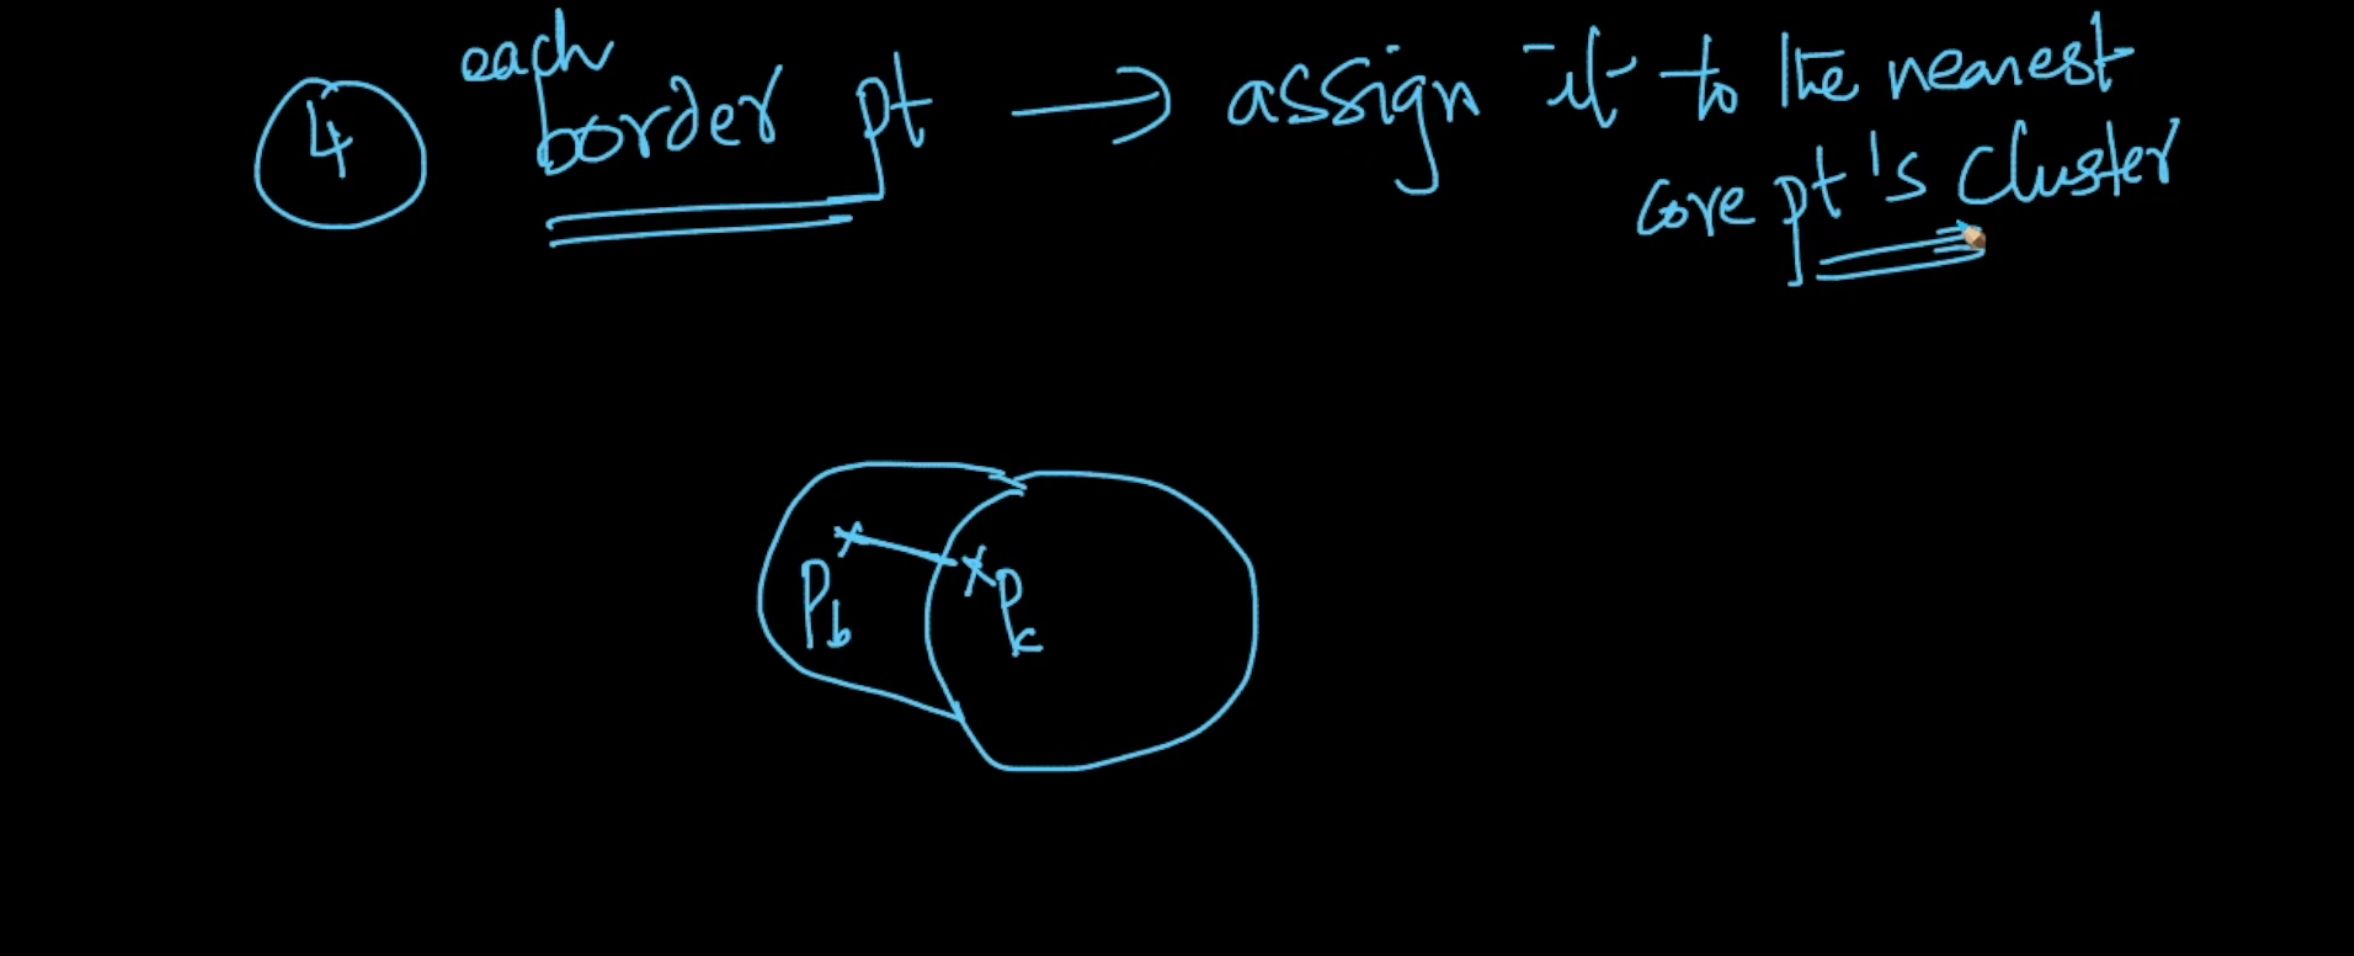 4 each border pt → assign it to the nearest
core pt's cluster
Pb
Pc